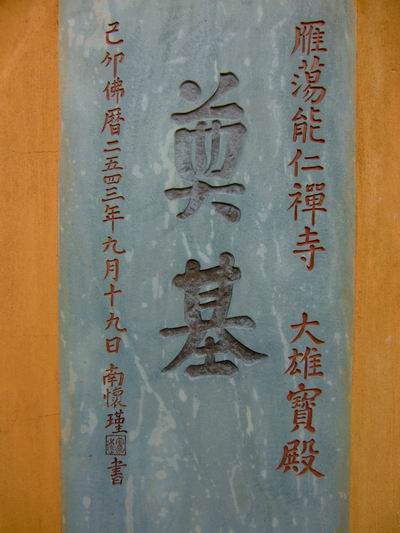 雁蕩能仁禪寺 大雄寶殿
奠基
己卯佛曆二五四三年九月十九日 南懷瑾 書